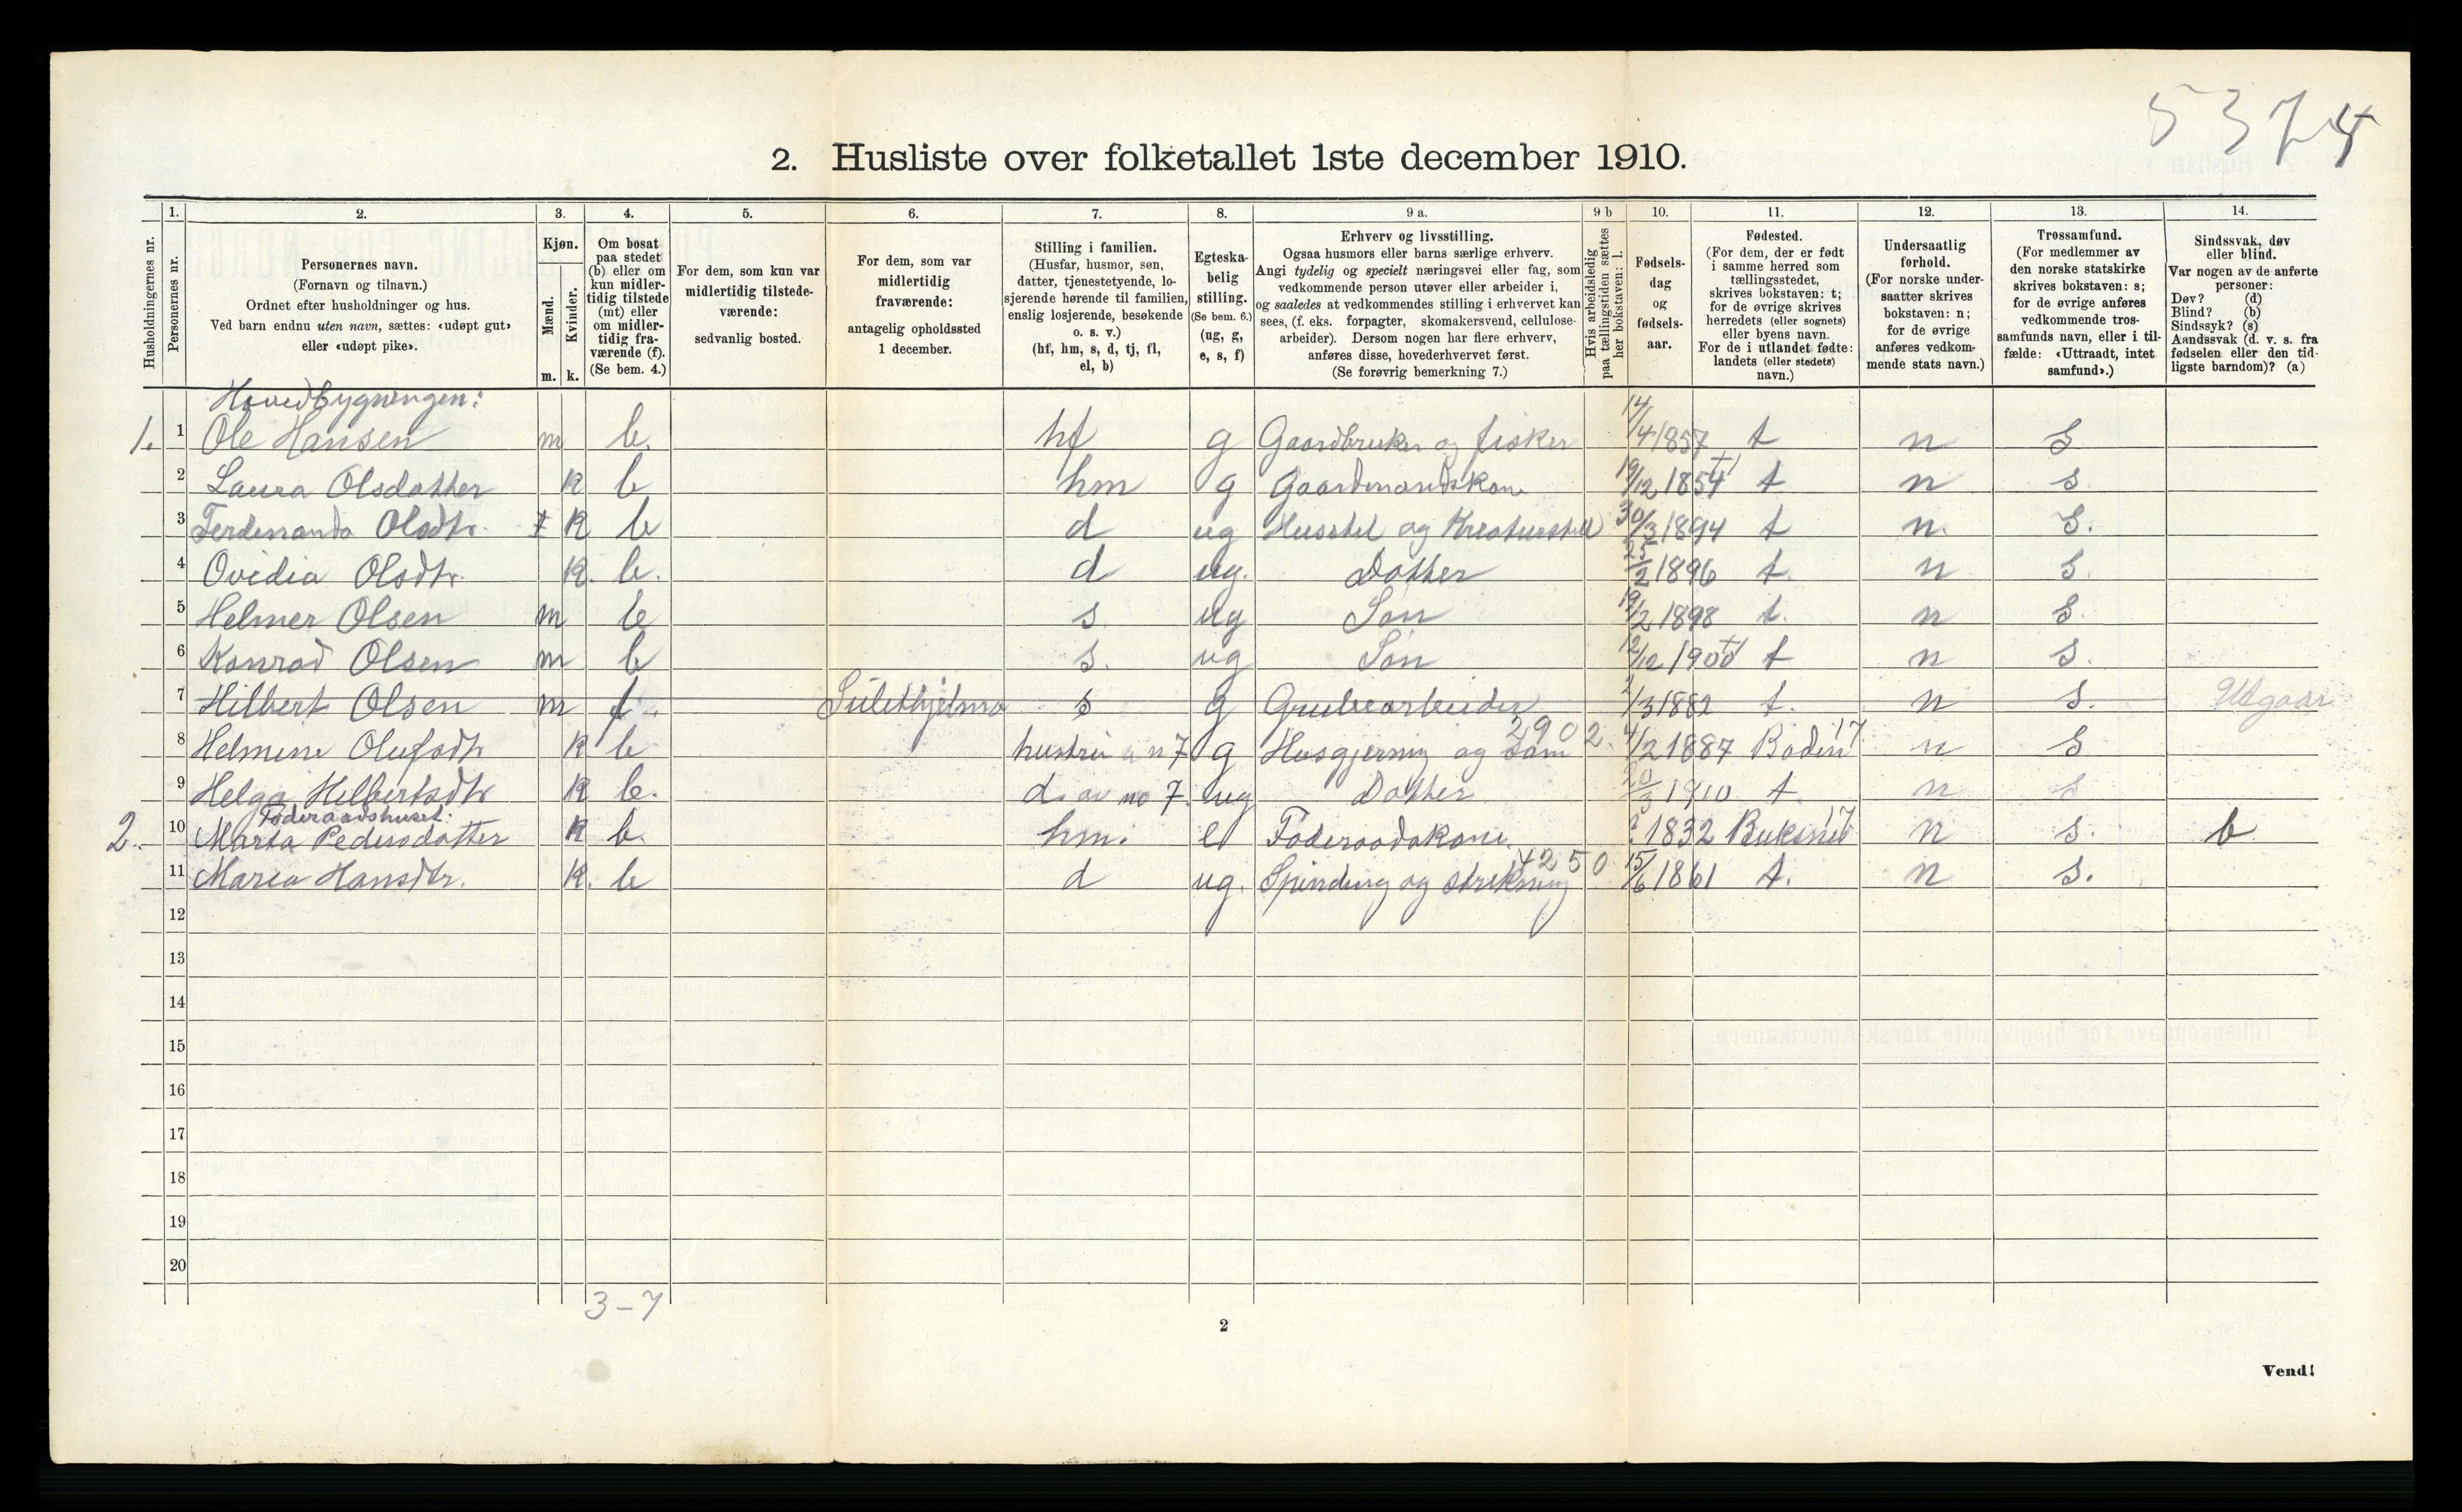 5374
2. Husliste over folketallet 1ste december 1910.
Husholdningernes nr.
1.
Personernes nr.
2.
Personernes navn.
(Fornavn og tilnavn.)
Ordnet efter husholdninger og hus.
Ved barn endnu uten navn, sættes: «udøpt gut»
eller «udøpt pike».
3.
Kjøn.
Mænd.
Kvinder.
m. k.
4.
Om bosat
paa stedet
(b) eller om
kun midler-
tidig tilstede
(mt) eller
om midler-
tidig fra-
værende (f).
(Se bem. 4.)
5.
For dem, som kun var
midlertidig tilstede-
værende:
sedvanlig bosted.
6.
For dem, som var
midlertidig
fraværende:
antagelig opholdssted
1 december.
7.
Stilling i familien.
(Husfar, husmor, søn,
datter, tjenestetyende, lo-
sjerende hørende til familien,
enslig losjerende, besøkende
o. s. v.)
(hf, hm, s, d, tj, fl,
el, b)
8.
Egteska-
belig
stilling.
(Se bem. 6.)
(ug, g,
e, s, f)
9 a.
Erhverv og livsstilling.
Ogsaa husmors eller barns særlige erhverv.
Angi tydelig og specielt næringsvei eller fag, som
vedkommende person utøver eller arbeider i,
og saaledes at vedkommendes stilling i erhvervet kan
sees, (f. eks. forpagter, skomakersvend, cellulose-
arbeider). Dersom nogen har flere erhverv,
anføres disse, hovederhvervet først.
(Se forøvrig bemerkning 7.)
9 b
Hvis arbeidsledig
paa tællingstiden sættes
her bokstaven: l.
10.
Fødsels-
dag
og
fødsels-
aar.
11.
Fødested.
(For dem, der er født
i samme herred som
tællingsstedet,
skrives bokstaven: t;
for de øvrige skrives
herredets (eller sognets)
eller byens navn.
For de i utlandet fødte:
landets (eller stedets)
navn.)
12.
Undersaatlig
forhold.
(For norske under-
saatter skrives
bokstaven: n;
for de øvrige
anføres vedkom-
mende stats navn.)
13.
Trossamfund.
(For medlemmer av
den norske statskirke
skrives bokstaven: s;
for de øvrige anføres
vedkommende tros-
samfunds navn, eller i til-
fælde: «Uttraadt, intet
samfund».)
14.
Sindssvak, døv
eller blind.
Var nogen av de anførte
personer:
Døv? (d)
Blind? (b)
Sindssyk? (s)
Aandssvak (d. v. s. fra
fødselen eller den tid-
ligste barndom)? (a)
Hovedbygningen:
1. 1 Ole Hansen m b. hf g Gaardbruker og fisker 14/4 1857 t n S
2 Laura Olsdatter k b hm g Gaardmandskone 19/12 1854 t n s.
3 Ferdinanda Olsdtr. k b d ug Husstel og Kreaturstell 30/3 1894 t n. S.
4 Ovidia Olsdtr. k. b. d ug. Datter 1896 t. n S.
5 Helmer Olsen m b s ug Søn 19/2 1898 t. n S.
6 Konrad Olsen m b s. ug Søn 12/12 1900 t n S.
7 Hilbert Olsen m f Sulithjelma s g Grubearbeider 2/3 1882 t. n s. Utgaar
2902.
8 Helmine Olufsdtr k b hustru a n 7 g Husgjerning og søm 4/2 1887 Bodin 17 n S
9 Helga Hilbertsdtr k b. d. av no 7. ug Datter 20/3 1910 t. n s
Føderaadshuset:
2. 10 Marta Pedersdatter k b. hm. e Føderaadskone ? 1832 Buksnes 17 n s. b
4250
11 Maria Hansdtr. k. b d ug. Spinding og strikning 15/6 1861 t. n s.
12
13
14
15
16
17
18
19
20
3-7
2
Vend!